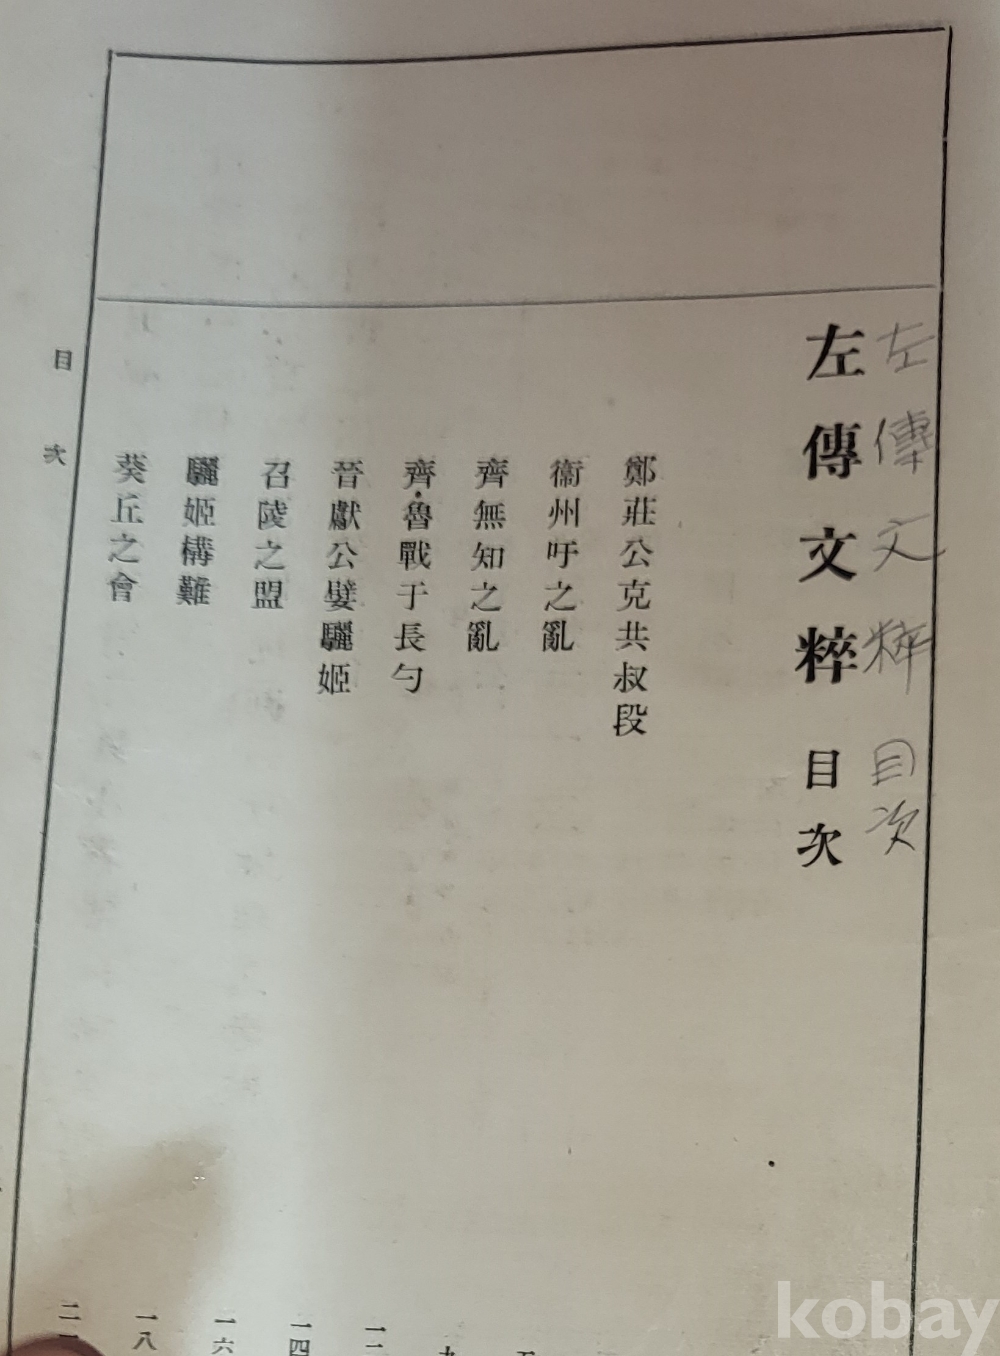 左傳文粹目次
左傳文粹 目次
鄭莊公克共叔段
衞州吁之亂
齊無知之亂
齊・魯戰于長勺
晉獻公嬖驪姬
召陵之盟
驪姬構難
葵丘之會
九
一二
一四
一六
一八
二一
目次
kobay